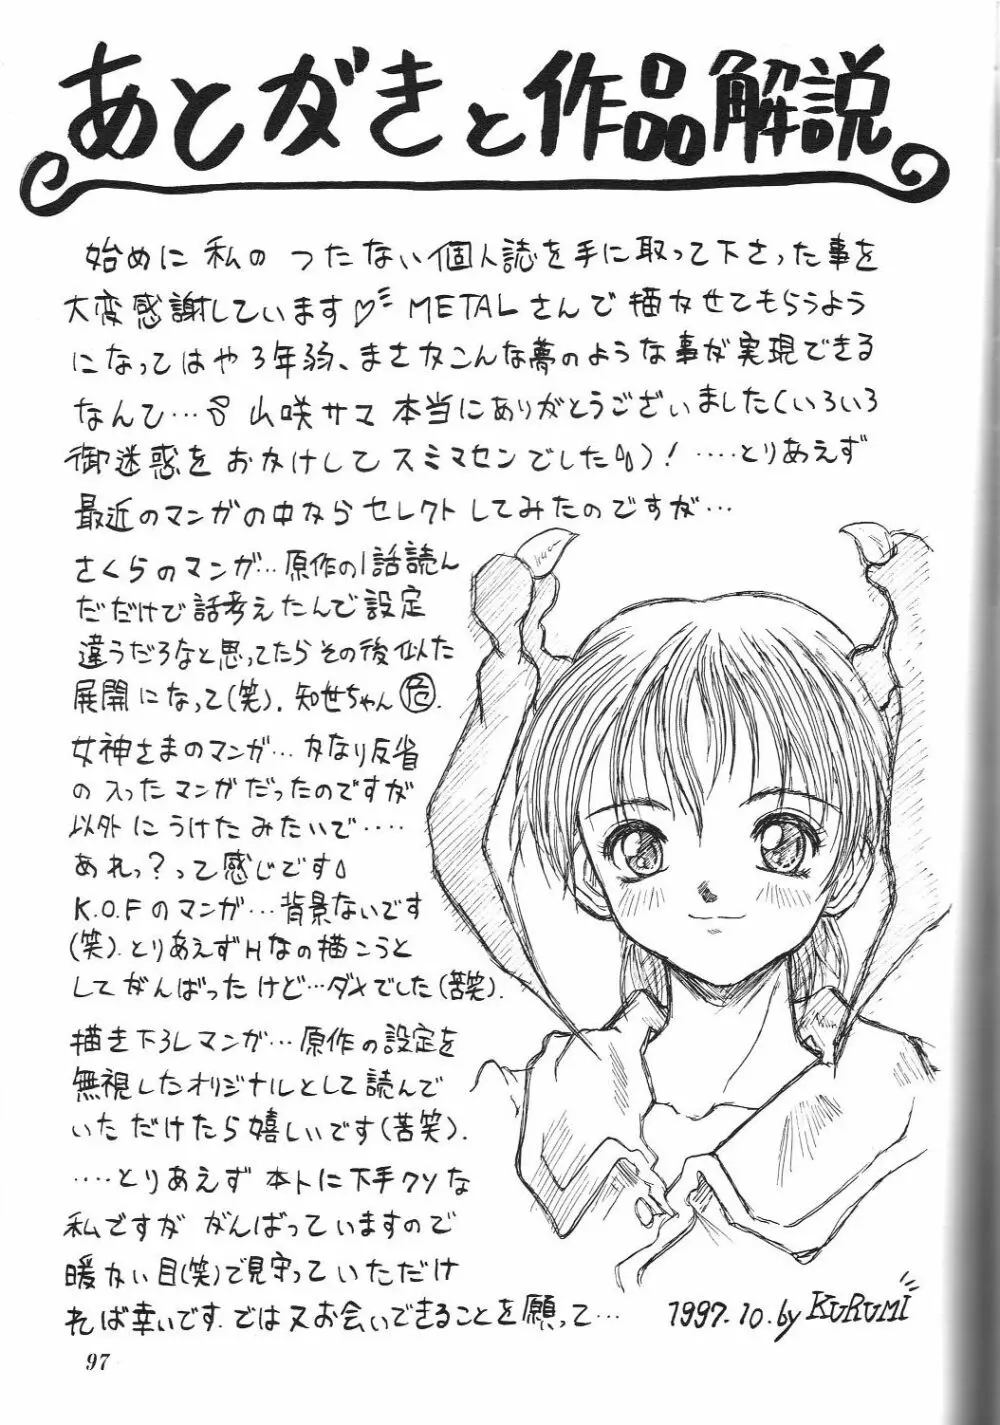 あとがきと作品解説
始めに私のつたない個人誌を手に取って下さった事を
大変感謝しています♡ METALさんで描かせてもらうよう
になってはや3年弱、まさかこんな夢のような事が実現できる
なんて…山咲サマ本当にありがとうございました(いろいろ
御迷惑をおかけしてスミマセンでした)!‥‥とりあえず
最近のマンガの中からセレクトしてみたのですが…
さくらのマンガ…原作の1話読ん
だだけで話考えたんで設定
違うだろなと思ってたらその後似た
展開になって(笑).知世ちゃん㊟.
女神さまのマンガ…かなり反省
の入ったマンガだったのですが
以外にうけたみたいで‥‥
あれっ?って感じです
K.O.Fのマンガ…背景ないです
(笑).とりあえずHなの描こうと
してがんばったけど…ダメでした(苦笑).
描き下ろしマンガ…原作の設定を
無視したオリジナルとして読んで
いただけたら嬉しいです(苦笑).
‥‥とりあえず本トに下手クソな
私ですががんばっていますので
暖かい目(笑)で見守っていただけ
れば幸いです.では又お会いできることを願って…
1997.10.by KURUMI
97